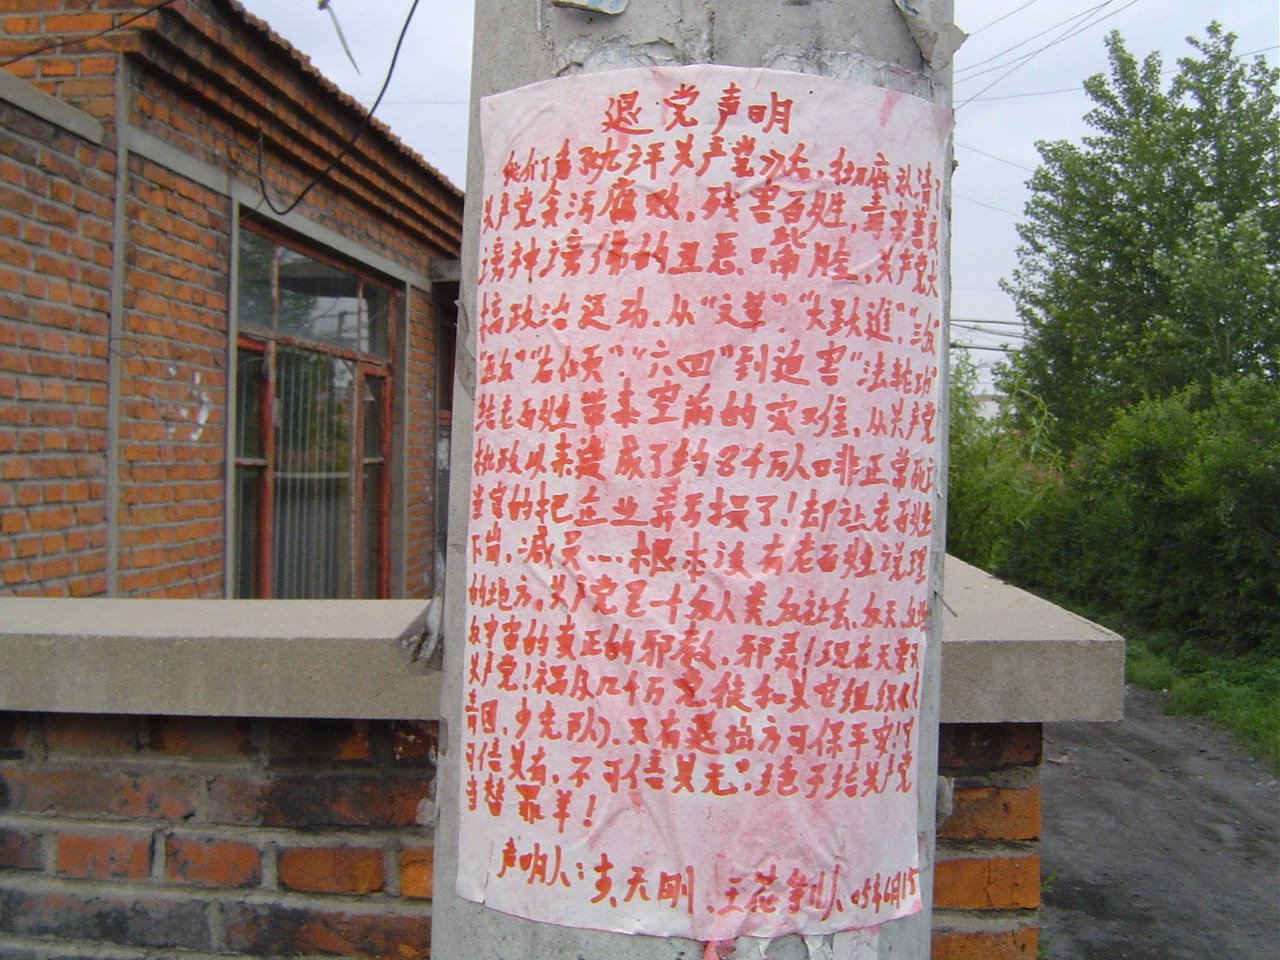 退党声明
我们看了《九评共产党》后,彻底认清了
共产党贪污腐败,残害百姓,毒害善良
谤神谤佛的丑恶嘴脸,共产党大
搞政治运动,从“文革”“大跃進”“三反”
“五反”“右倾”“六四”到迫害“法轮功”
给老百姓带来空前的灾难,从共产党
执政以来造成了约8千万人口非正常死亡
当官的把企业弄亏损了!却让老百姓
下岗,减员……根本没有老百姓说理
的地方。共产党是一个反人类、反社会、反天、反地
反宇宙的真正的邪教,邪灵!现在天要灭
共产党!祸及几千万党徒和其它组织
青团,少先队)、只有退出方可保平安!宁
可信其有,不可信其无”,于给共产党
当替罪羊!
声明人:天刚、王花等人、05年6月15